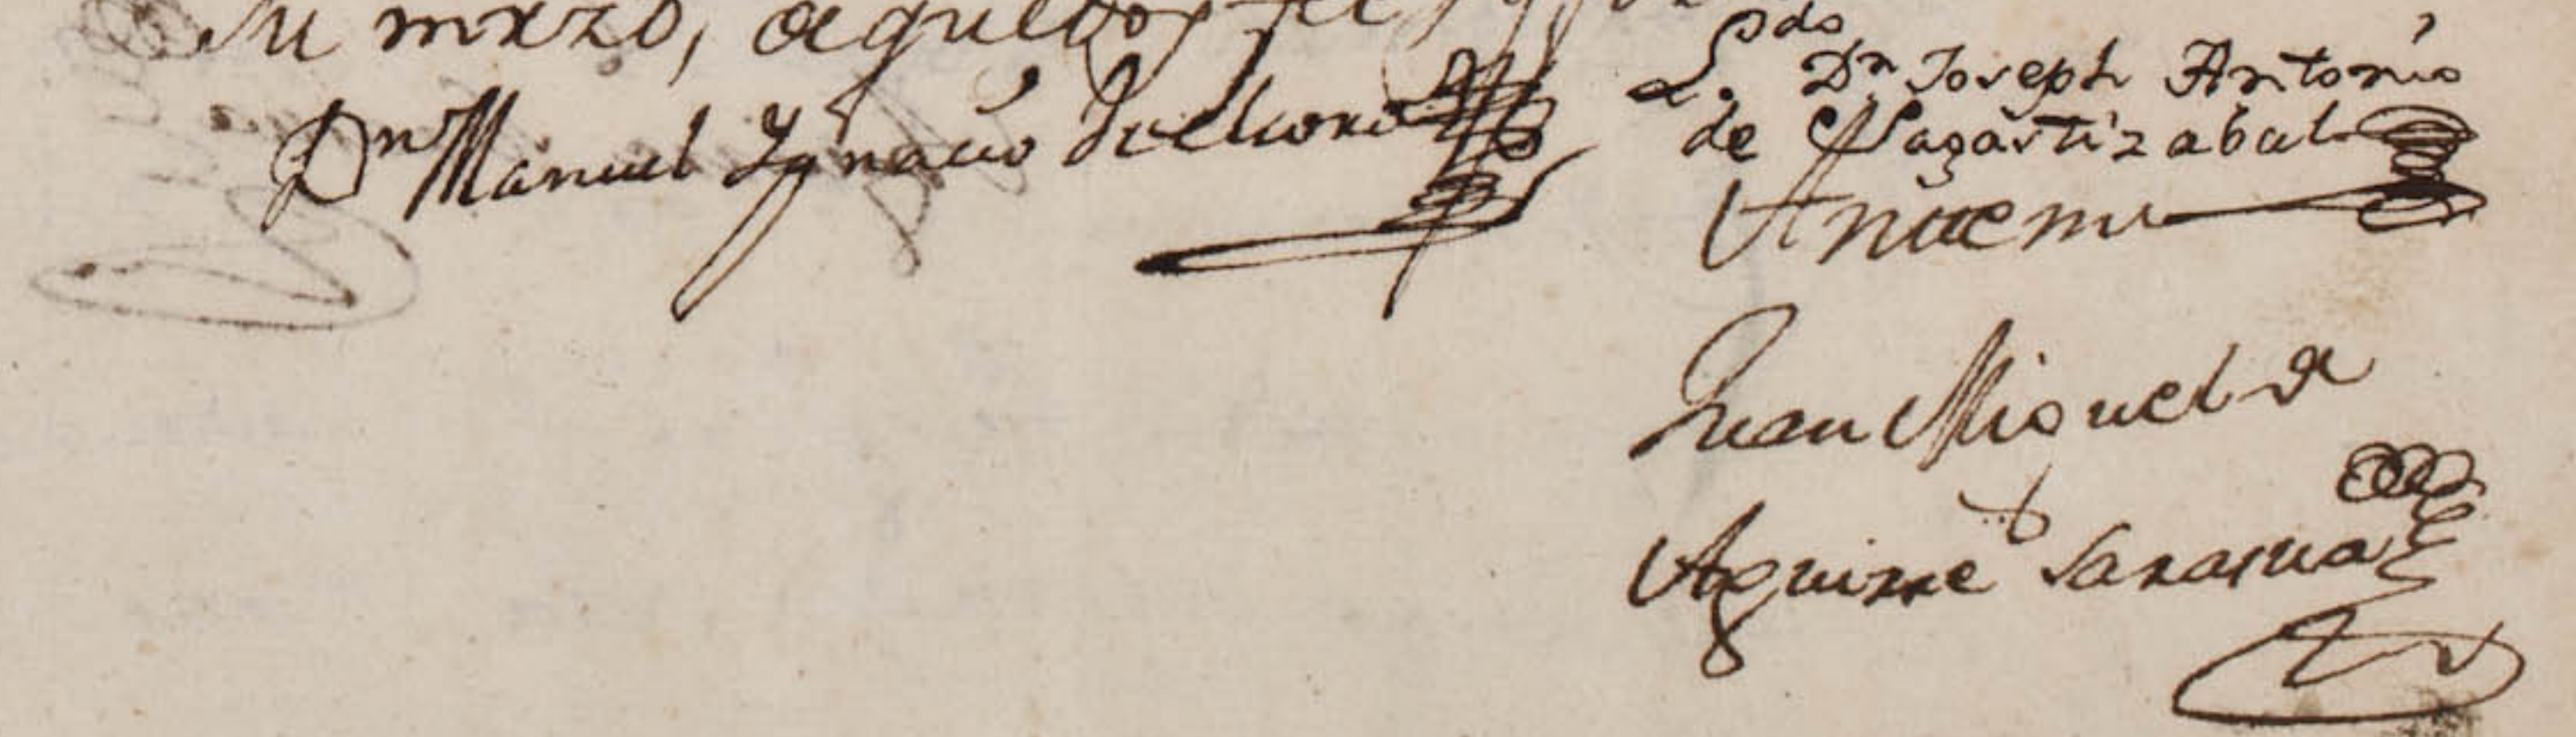 su mrzd, de que doy fee
Dn Manuel Ygnacio
L.do Dn Joseph Antonio
de Sagastizabal
Antemi
Juan Miguel de
Aguirre Sarasua